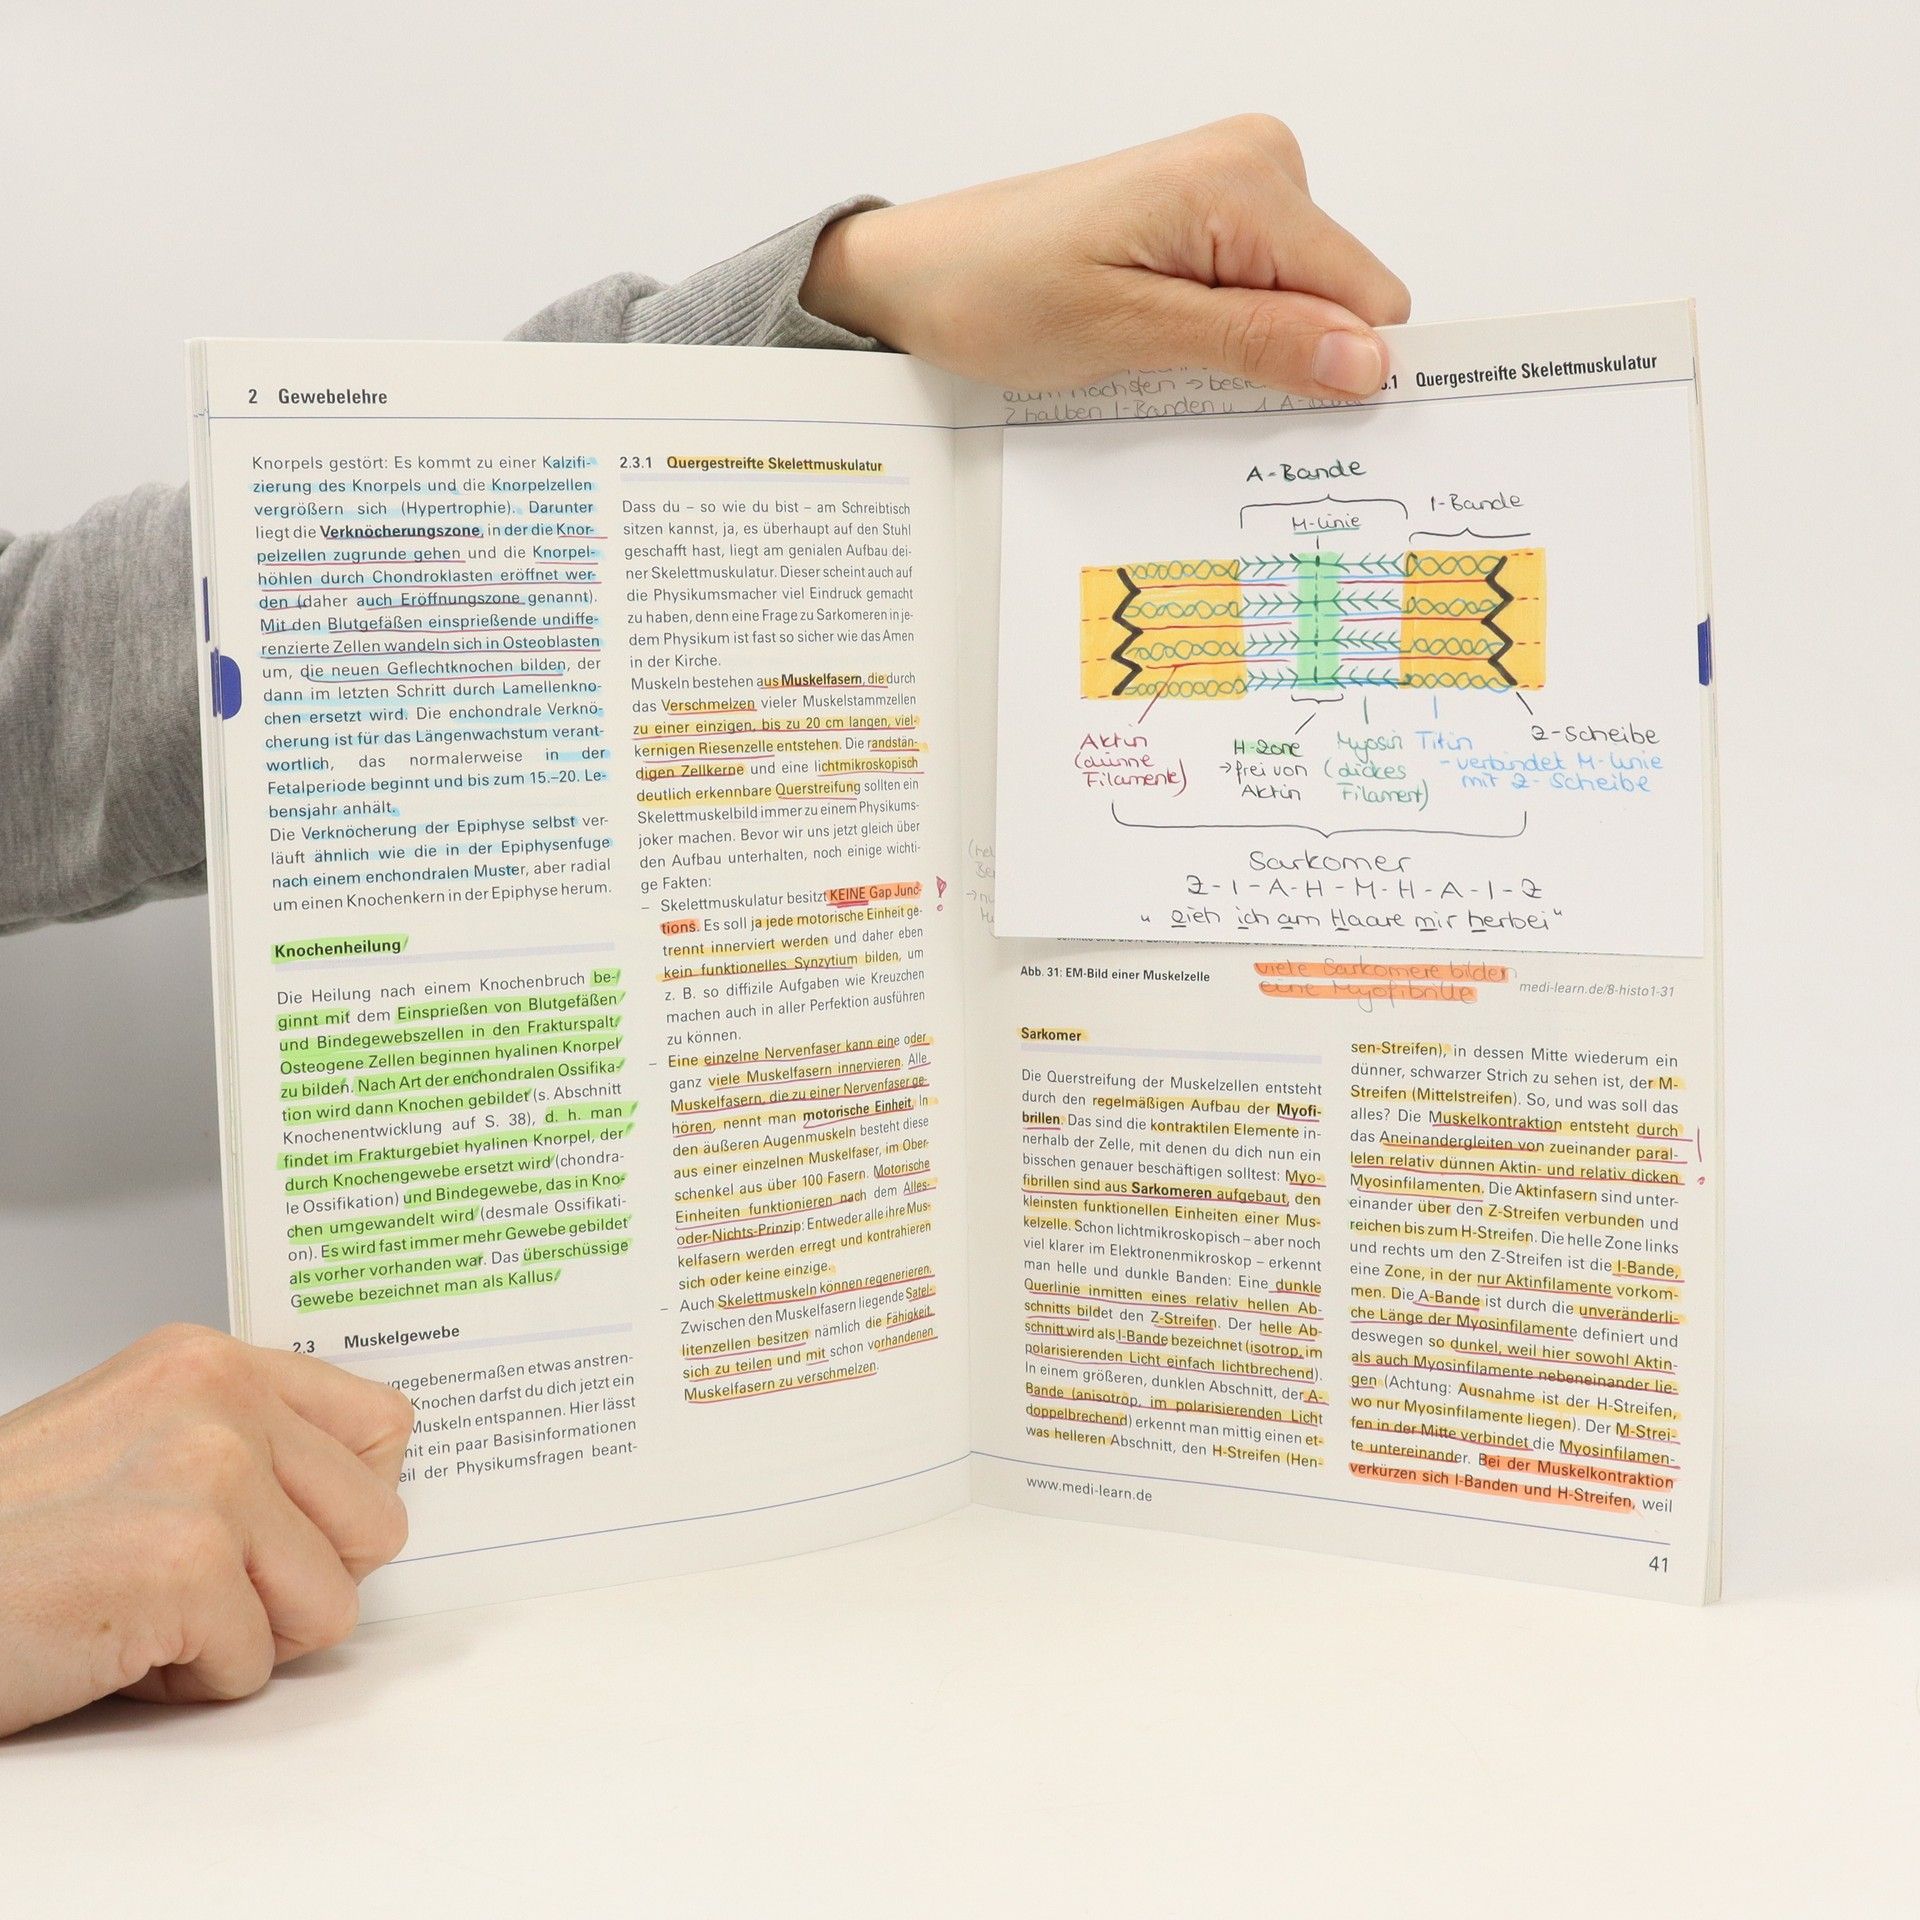 2 Gewebelehre
Knorpels gestört: Es kommt zu einer Kalzifi-
zierung des Knorpels und die Knorpelzellen
vergrößern sich (Hypertrophie). Darunter
liegt die Verknöcherungszone, in der die Knor-
pelzellen zugrunde gehen und die Knorpel-
höhlen durch Chondroklasten eröffnet wer-
den (daher auch Eröffnungszone genannt).
Mit den Blutgefäßen einsprießende undiffe-
renzierte Zellen wandeln sich in Osteoblasten
um, die neuen Geflechtknochen bilden, der
dann im letzten Schritt durch Lamellenkno-
chen ersetzt wird. Die enchondrale Verknö-
cherung ist für das Längenwachstum verant-
wortlich, das normalerweise in der
Fetalperiode beginnt und bis zum 15.–20. Le-
bensjahr anhält.
Die Verknöcherung der Epiphyse selbst ver-
läuft ähnlich wie die in der Epiphysenfuge
nach einem enchondralen Muster, aber radial
um einen Knochenkern in der Epiphyse herum.
Knochenheilung
Die Heilung nach einem Knochenbruch be-
ginnt mit dem Einsprießen von Blutgefäßen
und Bindegewebszellen in den Frakturspalt.
Osteogene Zellen beginnen hyalinen Knorpel
zu bilden. Nach Art der enchondralen Ossifika-
tion wird dann Knochen gebildet (s. Abschnitt
Knochenentwicklung auf S. 38), d. h. man
findet im Frakturgebiet hyalinen Knorpel, der
durch Knochengewebe ersetzt wird (chondra-
le Ossifikation) und Bindegewebe, das in Kno-
chen umgewandelt wird (desmale Ossifikati-
on). Es wird fast immer mehr Gewebe gebildet
als vorher vorhanden war. Das überschüssige
Gewebe bezeichnet man als Kallus.
2.3 Muskelgewebe
gegebenermaßen etwas anstren-
Knochen darfst du dich jetzt ein
Muskeln entspannen. Hier lässt
mit ein paar Basisinformationen
eil der Physikumsfragen beant-
2.3.1 Quergestreifte Skelettmuskulatur
Dass du – so wie du bist – am Schreibtisch
sitzen kannst, ja, es überhaupt auf den Stuhl
geschafft hast, liegt am genialen Aufbau dei-
ner Skelettmuskulatur. Dieser scheint auch auf
die Physikumsmacher viel Eindruck gemacht
zu haben, denn eine Frage zu Sarkomeren in je-
dem Physikum ist fast so sicher wie das Amen
in der Kirche.
Muskeln bestehen aus Muskelfasern, die durch
das Verschmelzen vieler Muskelstammzellen
zu einer einzigen, bis zu 20 cm langen, viel-
kernigen Riesenzelle entstehen. Die randstän-
digen Zellkerne und eine lichtmikroskopisch
deutlich erkennbare Querstreifung sollten ein
Skelettmuskelbild immer zu einem Physikums-
joker machen. Bevor wir uns jetzt gleich über
den Aufbau unterhalten, noch einige wichti-
ge Fakten:
– Skelettmuskulatur besitzt KEINE Gap Junc-
tions. Es soll ja jede motorische Einheit ge-
trennt innerviert werden und daher eben
kein funktionelles Synzytium bilden, um
z. B. so diffizile Aufgaben wie Kreuzchen
machen auch in aller Perfektion ausführen
zu können.
– Eine einzelne Nervenfaser kann eine oder
ganz viele Muskelfasern innervieren. Alle
Muskelfasern, die zu einer Nervenfaser ge-
hören, nennt man motorische Einheit. In
den äußeren Augenmuskeln besteht diese
aus einer einzelnen Muskelfaser, im Ober-
schenkel aus über 100 Fasern. Motorische
Einheiten funktionieren nach dem Alles-
oder-Nichts-Prinzip: Entweder alle ihre Mus-
kelfasern werden erregt und kontrahieren
sich oder keine einzige.
– Auch Skelettmuskeln können regenerieren.
Zwischen den Muskelfasern liegende Satel-
litenzellen besitzen nämlich die Fähigkeit,
sich zu teilen und mit schon vorhandenen
Muskelfasern zu verschmelzen.
!
.1 Quergestreifte Skelettmuskulatur
zum nächsten → beste
2 halben I-Banden u. 1 A-Bande
A-Bande
I-Bande
M-Linie
Aktin
(dünne
Filamente)
H-Zone
→ frei von
Aktin
Myosin
(dickes
Filament)
Titin
- verbindet M-Linie
mit Z-Scheibe
Z-Scheibe
Sarkomer
Z-I-A-H-M-H-A-I-Z
"Zieh ich am Haare mir herbei"
Abb. 31: EM-Bild einer Muskelzelle
viele Sarkomere bilden
eine Myofibrille
medi-learn.de/8-histo1-31
Sarkomer
Die Querstreifung der Muskelzellen entsteht
durch den regelmäßigen Aufbau der Myofi-
brillen. Das sind die kontraktilen Elemente in-
nerhalb der Zelle, mit denen du dich nun ein
bisschen genauer beschäftigen solltest: Myo-
fibrillen sind aus Sarkomeren aufgebaut, den
kleinsten funktionellen Einheiten einer Mus-
kelzelle. Schon lichtmikroskopisch – aber noch
viel klarer im Elektronenmikroskop – erkennt
man helle und dunkle Banden: Eine dunkle
Querlinie inmitten eines relativ hellen Ab-
schnitts bildet den Z-Streifen. Der helle Ab-
schnitt wird als I-Bande bezeichnet (isotrop, im
polarisierenden Licht einfach lichtbrechend).
In einem größeren, dunklen Abschnitt, der A-
Bande (anisotrop, im polarisierenden Licht
doppelbrechend) erkennt man mittig einen et-
was helleren Abschnitt, den H-Streifen (Hen-
sen-Streifen), in dessen Mitte wiederum ein
dünner, schwarzer Strich zu sehen ist, der M-
Streifen (Mittelstreifen). So, und was soll das
alles? Die Muskelkontraktion entsteht durch
das Aneinandergleiten von zueinander paral-
lelen relativ dünnen Aktin- und relativ dicken
Myosinfilamenten. Die Aktinfasern sind unter-
einander über den Z-Streifen verbunden und
reichen bis zum H-Streifen. Die helle Zone links
und rechts um den Z-Streifen ist die I-Bande,
eine Zone, in der nur Aktinfilamente vorkom-
men. Die A-Bande ist durch die unveränderli-
che Länge der Myosinfilamente definiert und
deswegen so dunkel, weil hier sowohl Aktin-
als auch Myosinfilamente nebeneinander lie-
gen (Achtung: Ausnahme ist der H-Streifen,
wo nur Myosinfilamente liegen). Der M-Strei-
fen in der Mitte verbindet die Myosinfilamen-
te untereinander. Bei der Muskelkontraktion
verkürzen sich I-Banden und H-Streifen, weil
!
www.medi-learn.de
41